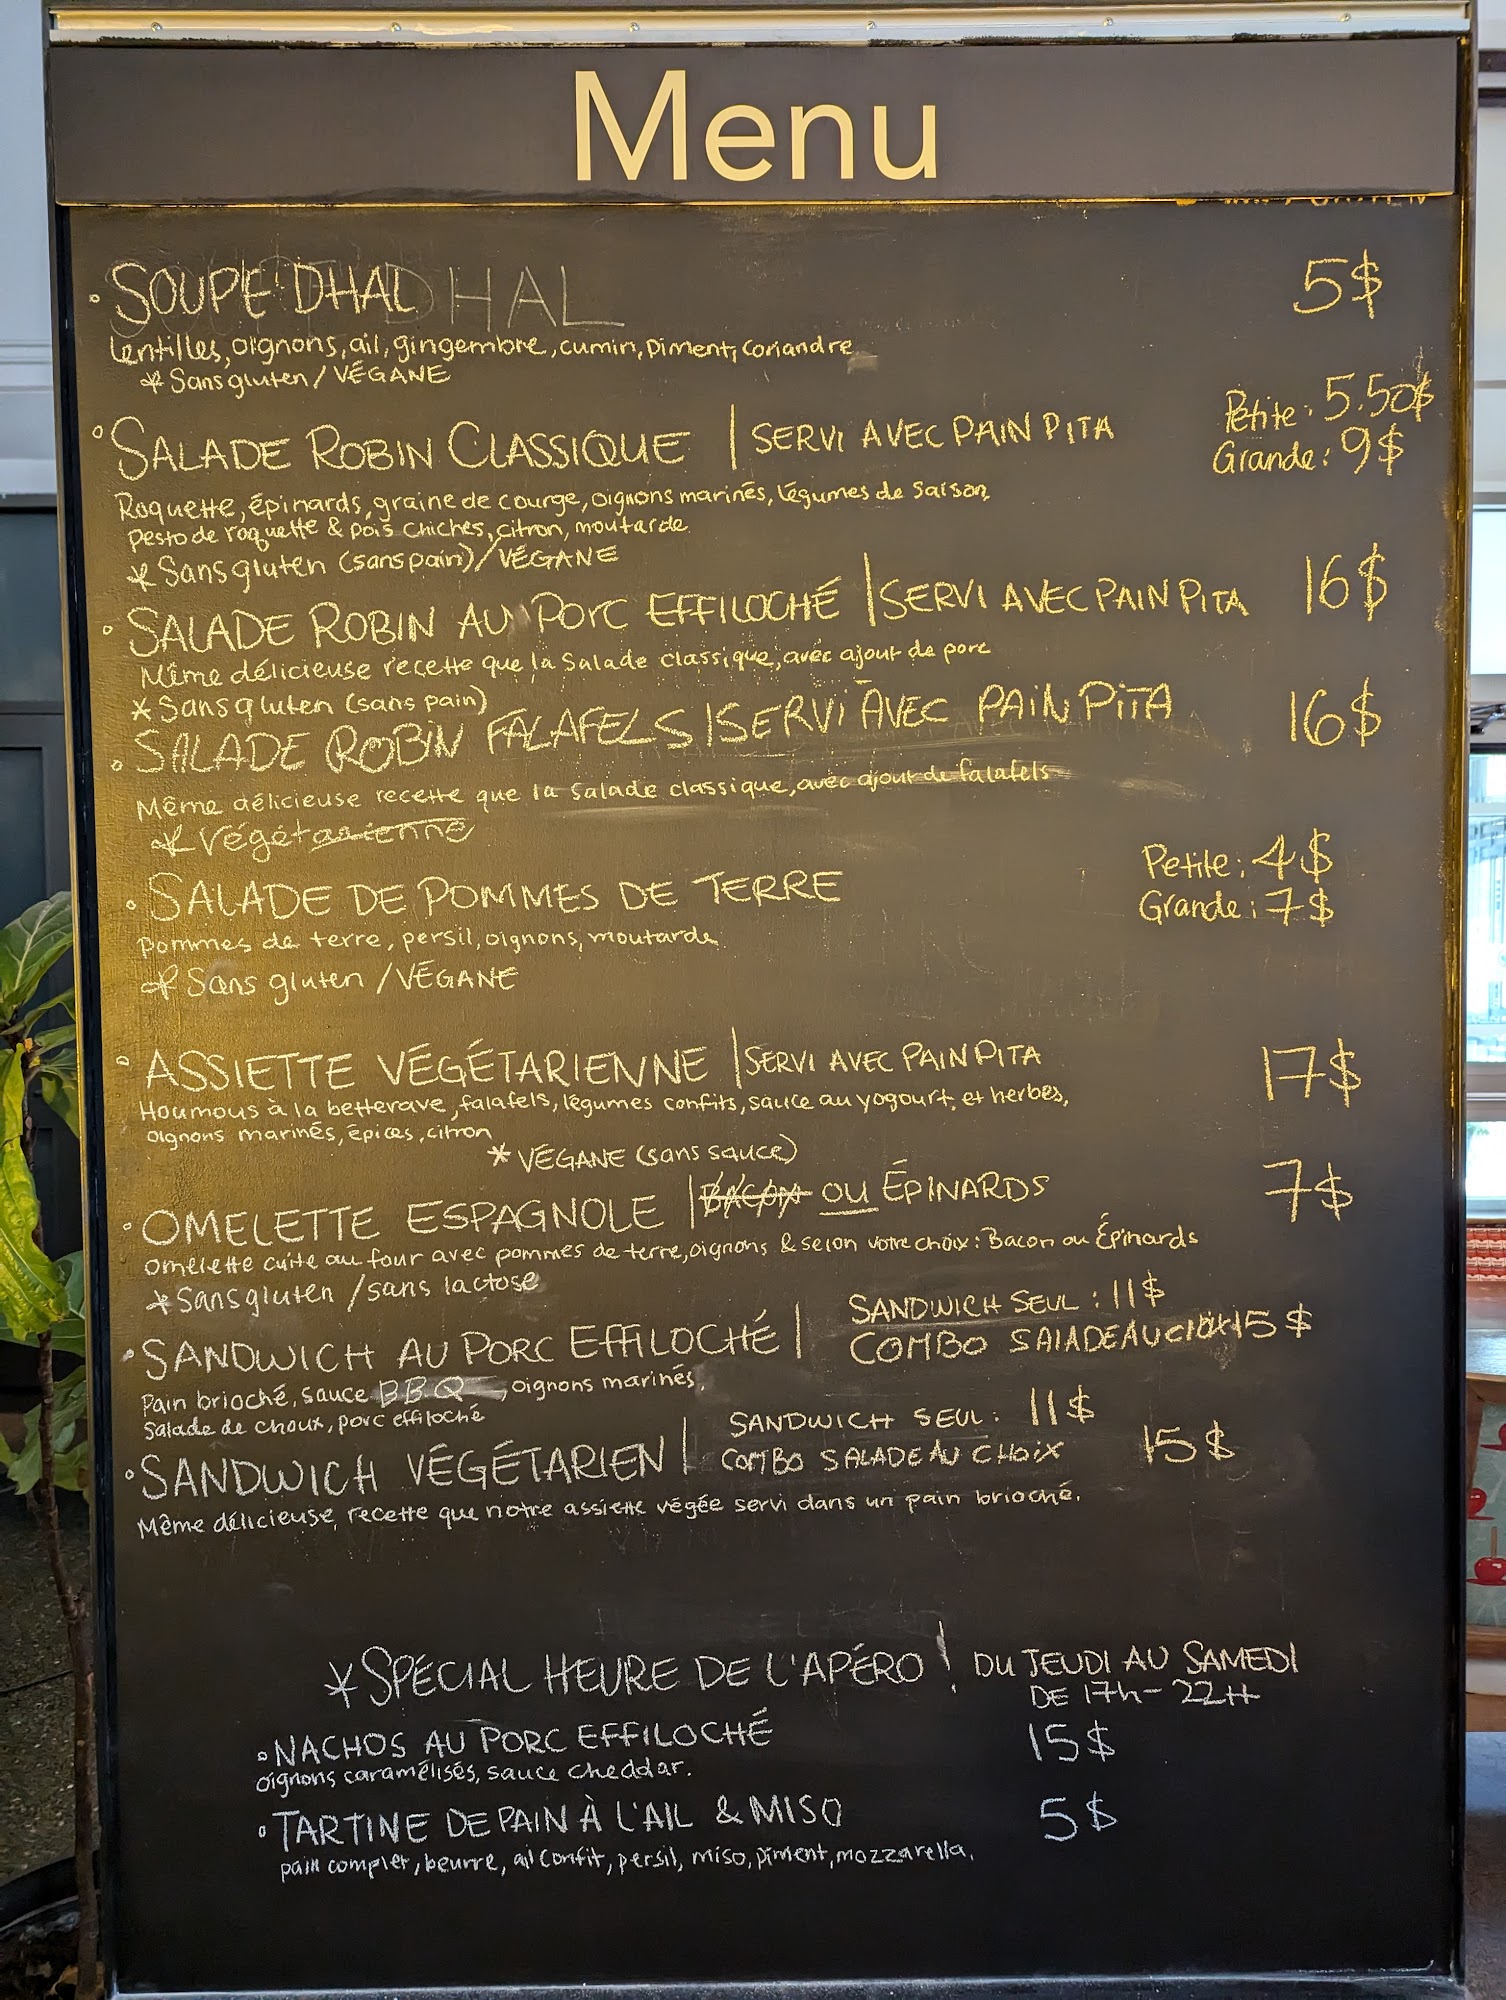 Menu
• SOUPE DHAL 5$
Lentilles, oignons, ail, gingembre, cumin, piment, coriandre
* Sans gluten / VÉGANE
• SALADE ROBIN CLASSIQUE | SERVI AVEC PAIN PITA Petite: 5.50$
Grande: 9$
Roquette, épinards, graine de courge, oignons marinés, légumes de saison,
pesto de roquette & pois chiches, citron, moutarde
* Sans gluten (sans pain) / VÉGANE
• SALADE ROBIN AU PORC EFFILOCHÉ | SERVI AVEC PAIN PITA 16$
Même délicieuse recette que la salade classique, avec ajout de porc
* Sans gluten (sans pain)
• SALADE ROBIN FALAFELS | SERVI AVEC PAIN PITA 16$
Même délicieuse recette que la salade classique, avec ajout de falafels
* Végétarienne
• SALADE DE POMMES DE TERRE Petite: 4$
Grande: 7$
pommes de terre, persil, oignons, moutarde
* Sans gluten / VÉGANE
• ASSIETTE VÉGÉTARIENNE | SERVI AVEC PAIN PITA 17$
Houmous à la betterave, falafels, légumes confits, sauce au yogourt et herbes,
oignons marinés, épices, citron
* VÉGANE (sans sauce)
• OMELETTE ESPAGNOLE | BACON OU ÉPINARDS 7$
omelette cuite au four avec pommes de terre, oignons & selon votre choix: Bacon ou Épinards
* Sans gluten / sans lactose
• SANDWICH AU PORC EFFILOCHÉ | SANDWICH SEUL : 11$
COMBO SALADE AU CHOIX 15$
Pain brioché, sauce BBQ, oignons marinés,
salade de choux, porc effiloché
• SANDWICH VÉGÉTARIEN | SANDWICH SEUL: 11$
COMBO SALADE AU CHOIX 15$
Même délicieuse recette que notre assiette végée servi dans un pain brioché.
* SPÉCIAL HEURE DE L'APÉRO ! DU JEUDI AU SAMEDI
DE 17h - 22H
• NACHOS AU PORC EFFILOCHÉ 15$
oignons caramélisés, sauce cheddar.
• TARTINE DE PAIN À L'AIL & MISO 5$
pain complet, beurre, ail confit, persil, miso, piment, mozzarella.